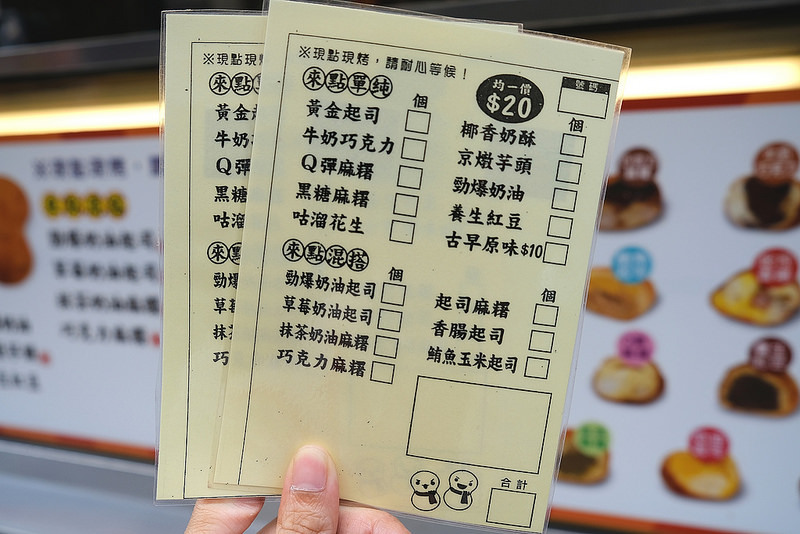 ※現點現烤，請耐心等候！
均一價
$20
號碼
來點單純
個
黃金起司
牛奶巧克力
Q彈麻糬
黑糖麻糬
咕溜花生
個
椰香奶酥
京燉芋頭
勁爆奶油
養生紅豆
古早原味$10
來點混搭
個
勁爆奶油起司
草莓奶油起司
抹茶奶油麻糬
巧克力麻糬
個
起司麻糬
香腸起司
鮪魚玉米起司
合計
※現點現
來點
黃金
牛奶
Q彈
黑糖
咕溜
來點
勁爆
草莓
抹茶
巧